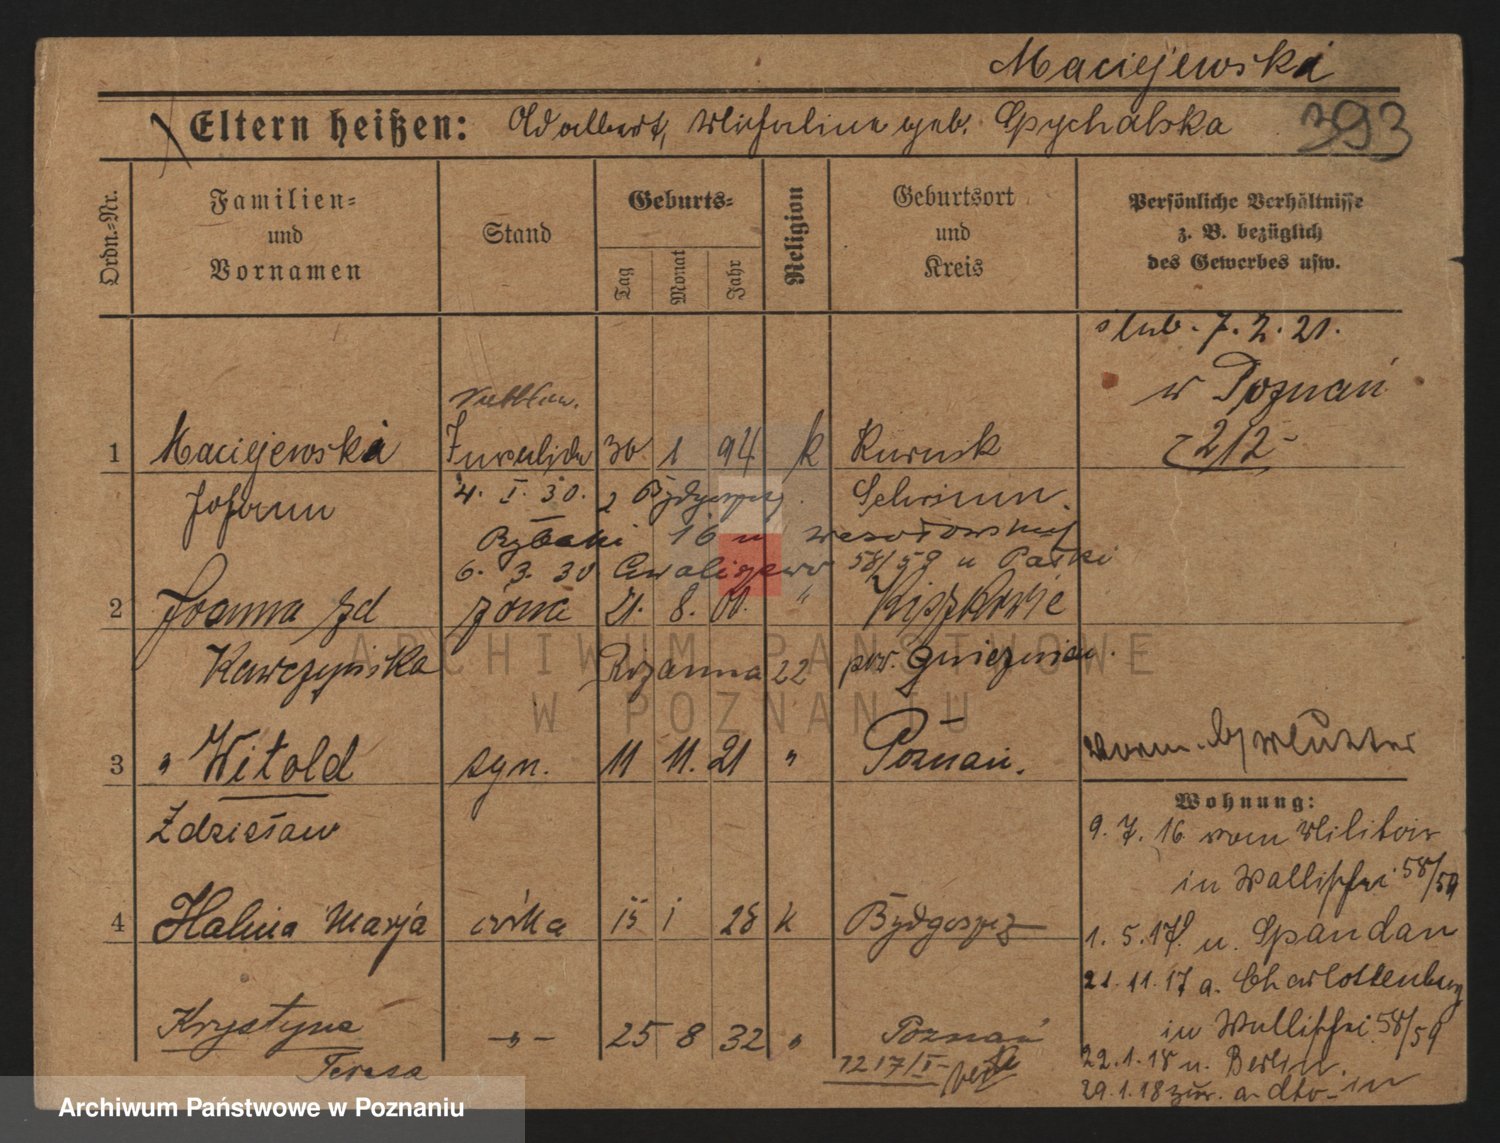 Maciejewski
Eltern heißen: Adalbert, Michaline geb. Spychalska 393
Ordn.-Nr.
Familien-
und
Vornamen
Stand
Geburts-
Tag
Monat
Jahr
Religion
Geburtsort
und
Kreis
Persönliche Verhältnisse
z. B. bezüglich
des Gewerbes usw.
ślub. 7. 2. 21.
w Poznań
212
1 Maciejewski Invalide 30 1 94 k Kurnik
Johann 4. I. 30. z Bydgoszcz. Schrimm.
Rybaki 16 u
6. 3. 30 Chwaliszewo 58/59 u
2 Joanna zd żona 21. 8. 00. " Kiszkowie
Kawczyńska 22 pow. gnieźnień.
3 " Witold syn. 11 11. 21 " Poznań.
Zdzisław
Wohnung:
9. 7. 16 vom Militair
in Wallischei 58/59
4 Halina Marja córka 15 1 28 k Bydgoszcz
1. 5. 17 n. Spandau
21. 11. 17 a. Charlottenburg
in Wallischei 58/59
Krystyna - " - 25 8 32 " Poznań
Teresa
22. 1. 18 n. Berlin.
29. 1. 18 zur. a. dto - in
ARCHIWUM PAŃSTWOWE
W POZNANIU
Archiwum Państwowe w Poznaniu